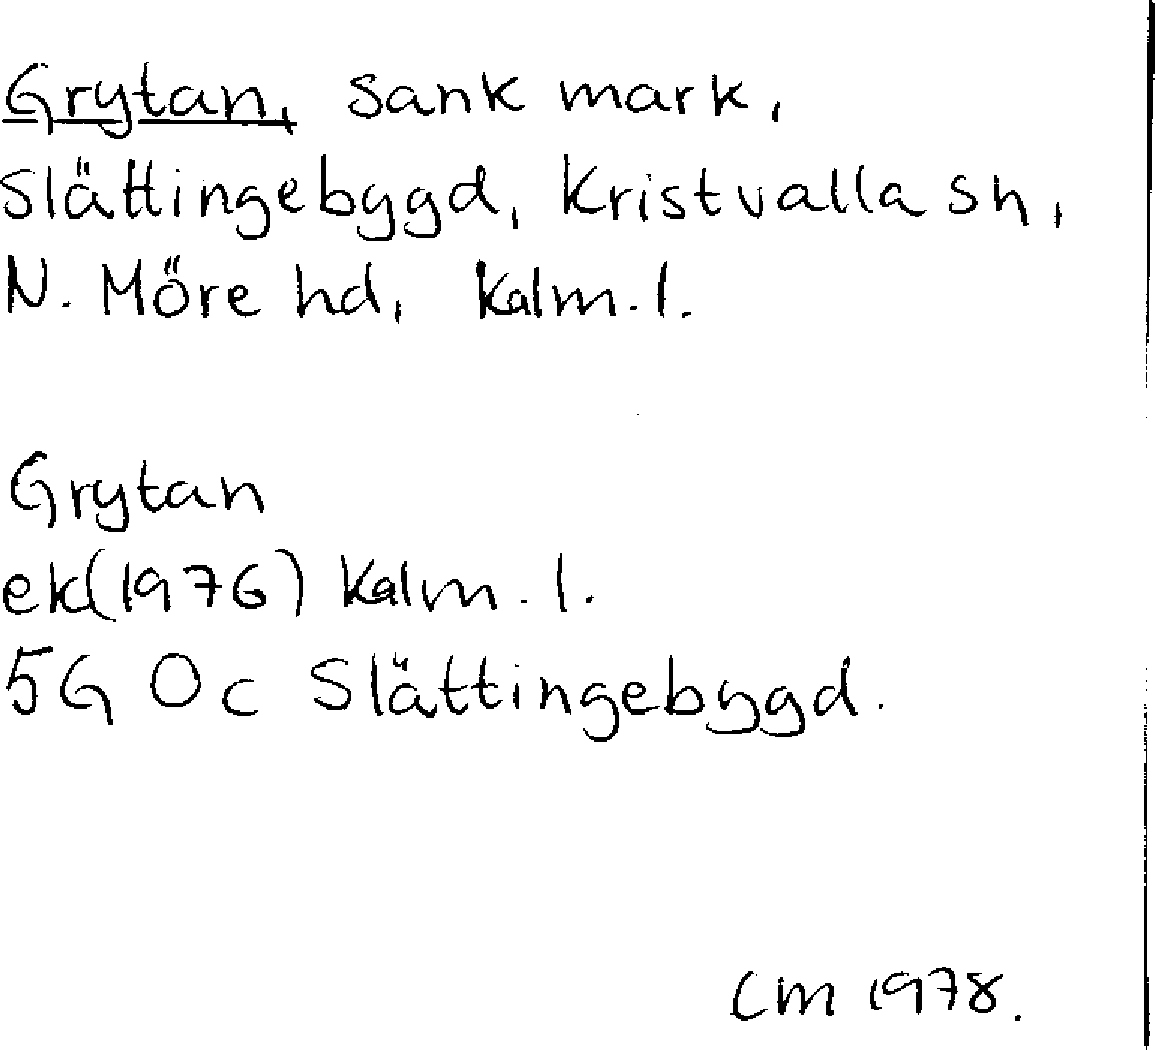 Grytan, sank mark,
Slättingebygd, Kristvalla sn,
N. Möre hd, Kalm. l.
Grytan
ek(1976) Kalm. l.
5G Oc Slättingebygd.
CM 1978.